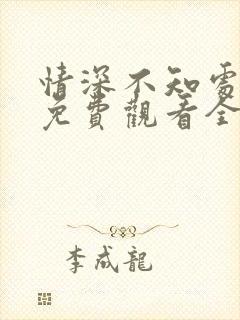 情深不知處
免費觀看全
李成龍